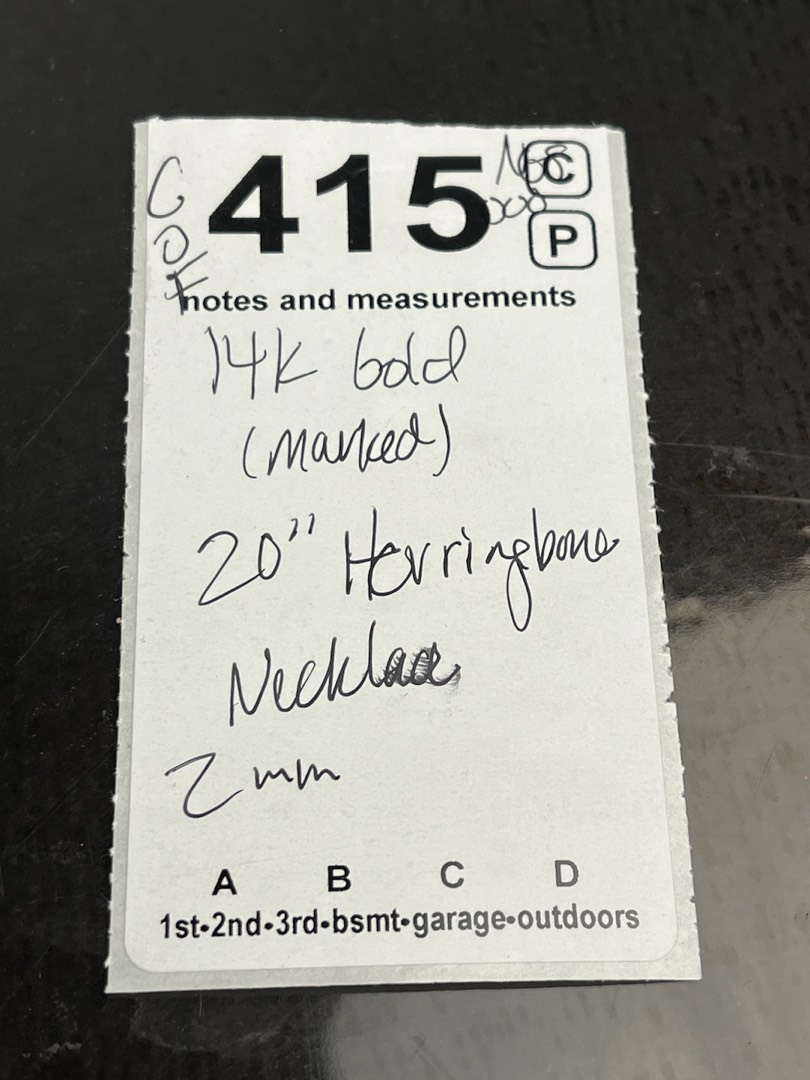 COF
415
C
P
notes and measurements
14K Gold
(marked)
20" Herringbone
Necklace
2mm
A B C D
1st•2nd•3rd•bsmt•garage•outdoors